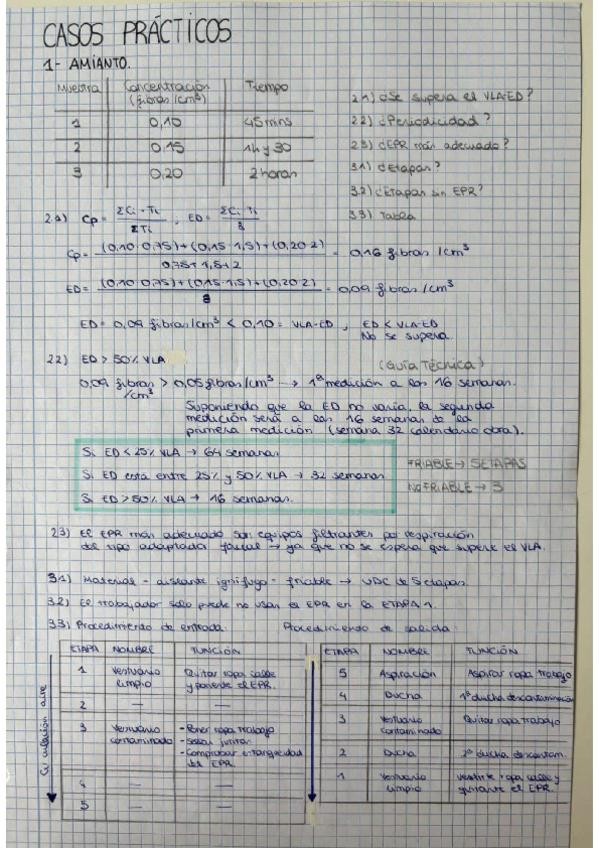 CASOS PRÁCTICOS
1- AMIANTO.
Muestra Concentración (fibras/cm³) Tiempo
1 0,10 45 mins
2 0,15 1h y 30
3 0,20 2 horas
2.1) ¿Se supera el VLA-ED?
2.2) ¿Periodicidad?
2.3) ¿EPR más adecuado?
3.1) ¿Etapas?
3.2) ¿Etapas sin EPR?
3.3) Tabla
2.1) Cp = ΣCi · Ti / ΣTi , ED = ΣCi · Ti / 8
Cp = (0,10·0,75)+(0,15·1,5)+(0,20·2) / 0,75+1,5+2 = 0,16 fibras/cm³
ED = (0,10·0,75)+(0,15·1,5)+(0,20·2) / 8 = 0,09 fibras/cm³
ED = 0,09 fibras/cm³ < 0,10 = VLA-ED , ED < VLA-ED
No se supera.
2.2) ED > 50% VLA (Guía Técnica)
0,09 fibras/cm³ > 0,05 fibras/cm³ → 1ª medición a las 16 semanas.
Suponiendo que la ED no varía, la segunda
medición será a las 16 semanas de la
primera medición (semana 32 calendario obra).
Si ED < 25% VLA → 64 semanas
Si ED está entre 25% y 50% VLA → 32 semanas
Si ED > 50% VLA → 16 semanas.
FRIABLE → 5 ETAPAS
NO FRIABLE → 3
2.3) El EPR más adecuado son equipos filtrantes por respiración
del tipo adaptador facial → ya que no se espera que supere el VLA.
3.1) Material - aislante ignífugo - friable → UDC de 5 etapas.
3.2) El trabajador solo puede no usar el EPR en la ETAPA 1.
3.3) Procedimiento de entrada: Procedimiento de salida:
Circulación aire
ETAPA NOMBRE FUNCIÓN
1 Vestuario limpio Quitar ropa calle y ponerse el EPR.
2 — —
3 Vestuario contaminado - Poner ropa trabajo
- Sellar juntas
- Comprobar estanqueidad del EPR
4 — —
5 — —
ETAPA NOMBRE FUNCIÓN
5 Aspiración Aspirar ropa trabajo
4 Ducha 1ª ducha descontaminación
3 Vestuario contaminado Quitar ropa trabajo
2 Ducha 2ª ducha descontam.
1 Vestuario limpio Vestirse ropa calle y quitarse el EPR.